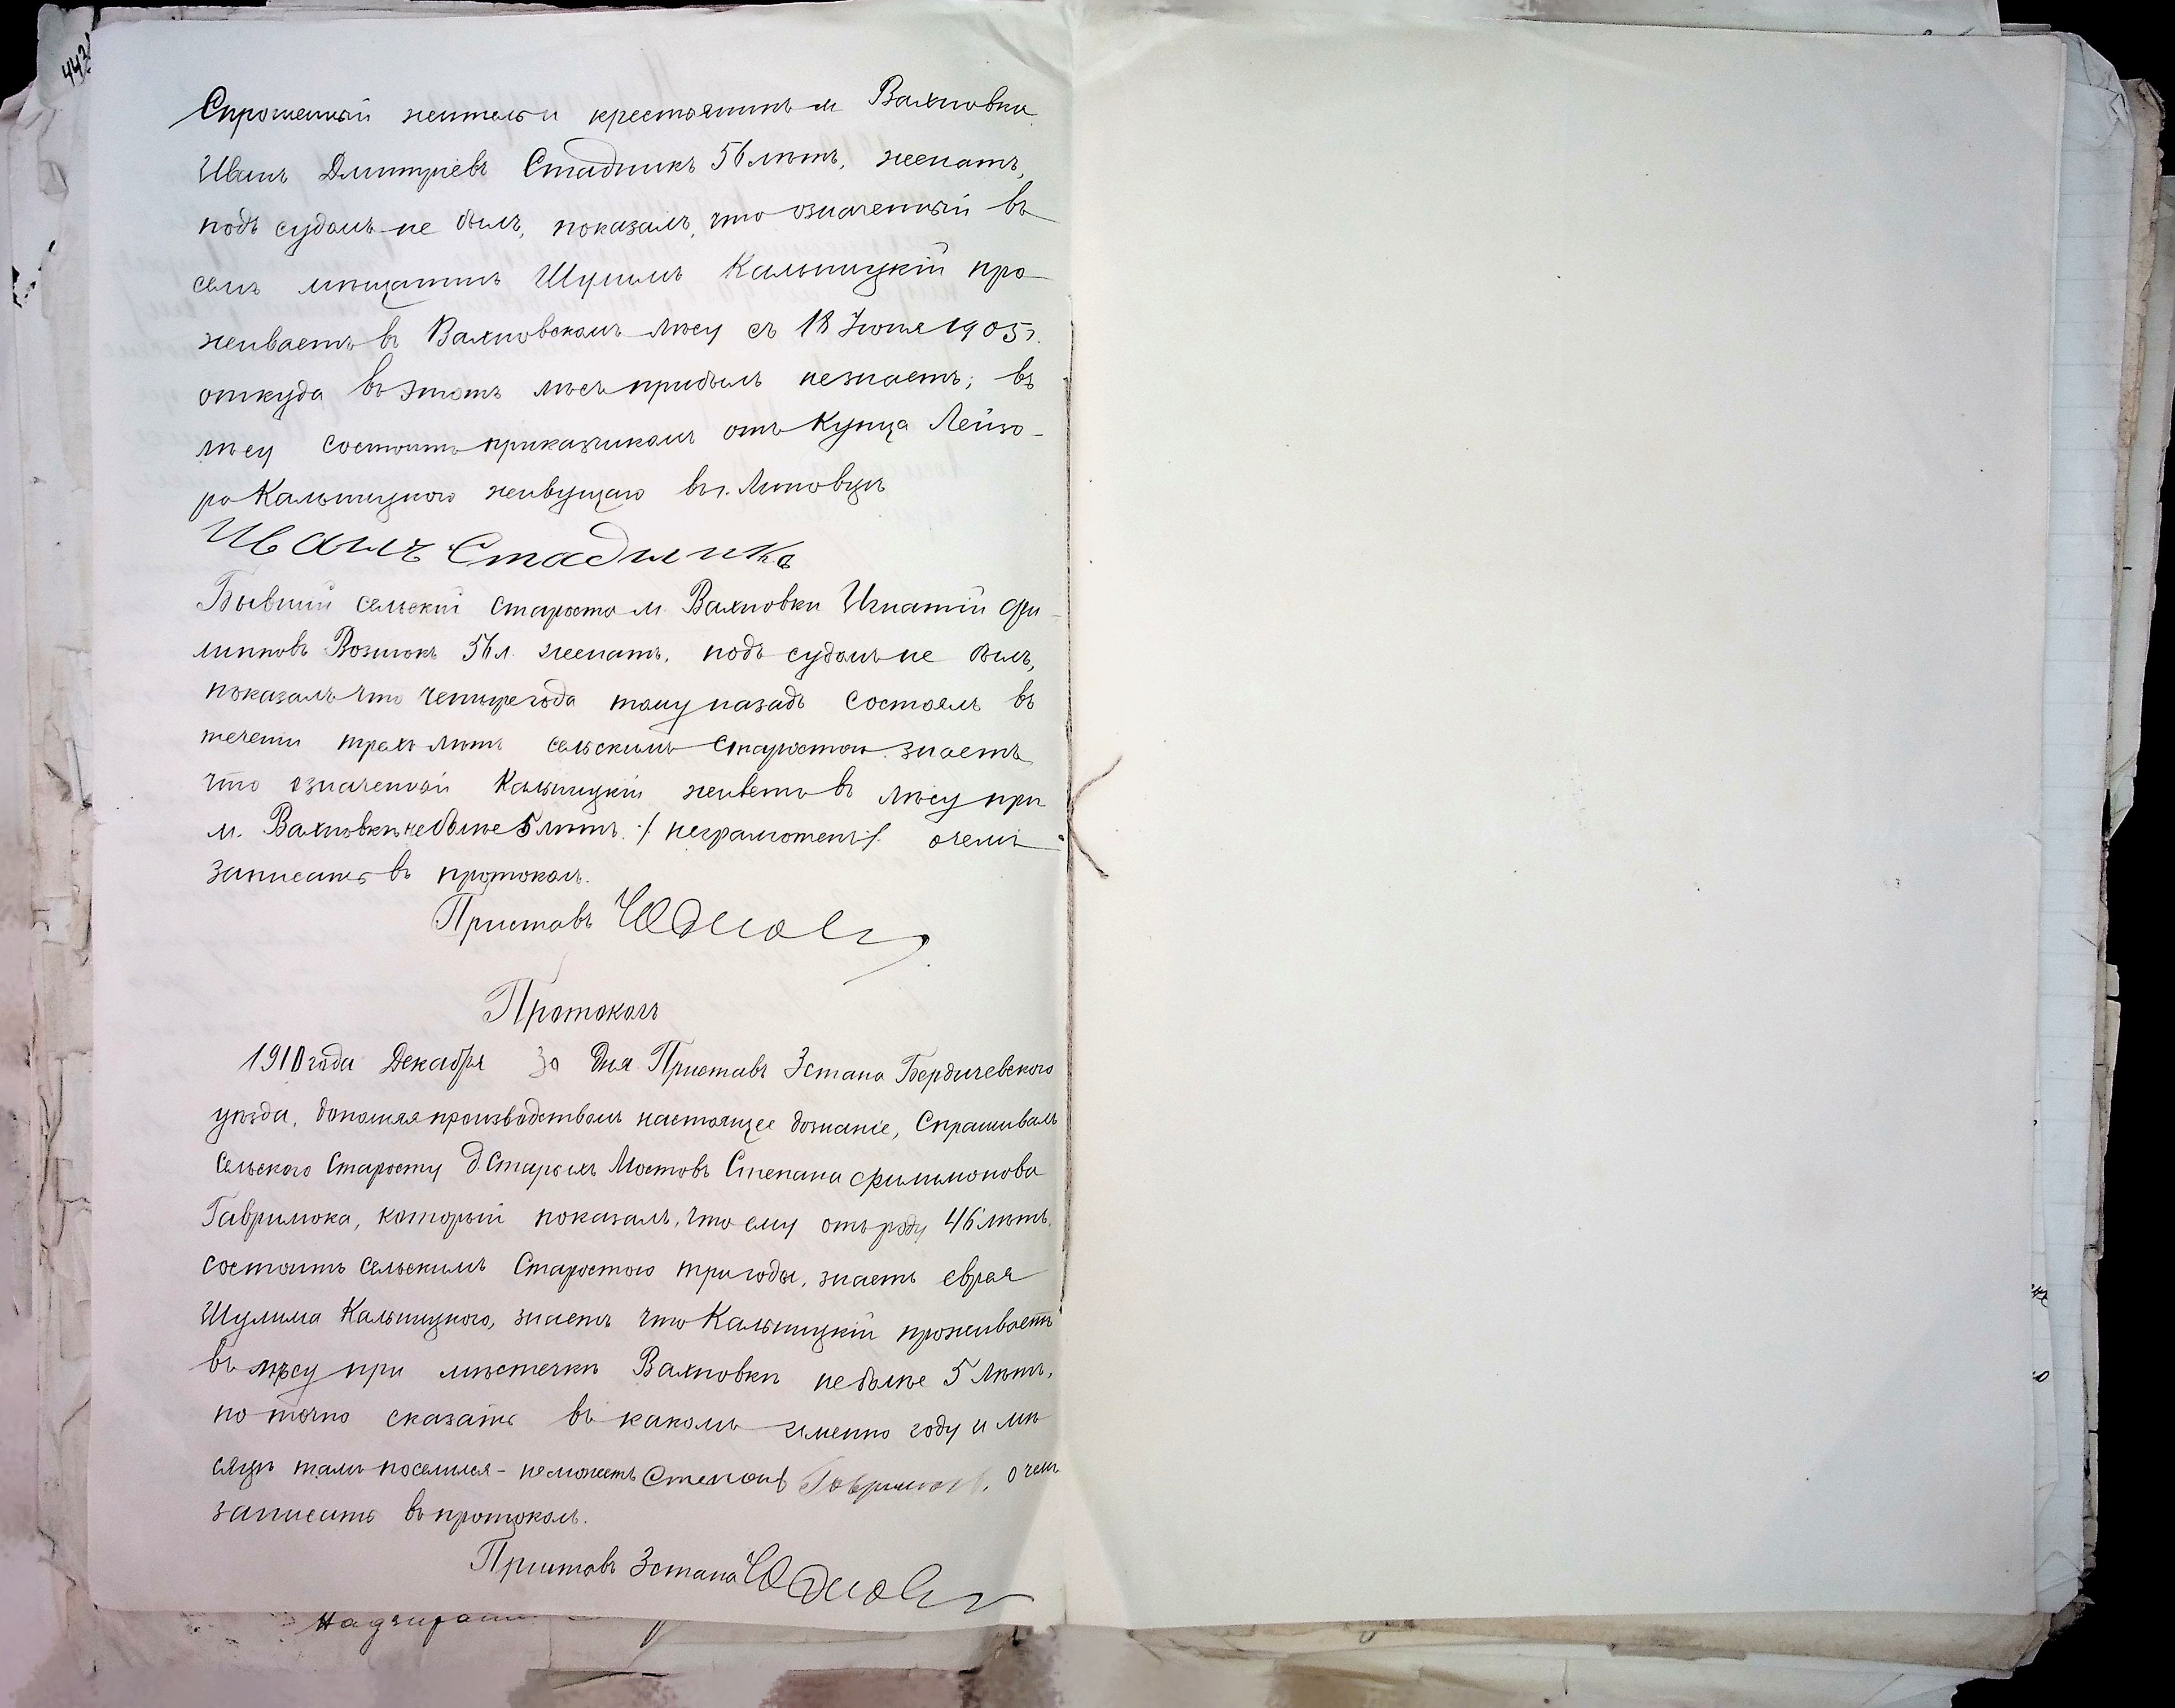 442
Спрошенный житель и крестьянинъ м Вахновки
Иванъ Дмитріевъ Стадникъ 56 лѣтъ, женатъ,
подъ судомъ не былъ, показалъ, что означенный въ
семъ мѣщанинъ Шулимъ Кальницкій про-
живаетъ въ Вахновскомъ лѣсу съ 18 Іюня 1905 г.
откуда въ этотъ лѣсъ прибылъ незнаетъ; въ
лѣсу состоитъ приказчикомъ отъ Купца Лейзо-
ра Кальницкого живущаго въ г. Липовцѣ
Иванъ Стадникъ
Бывшій сельскій староста м. Вахновки Игнатій Фи-
липповъ Вознюкъ 56 л. женатъ, подъ судомъ не былъ,
показалъ что четыре года тому назадъ состоялъ въ
течени трехъ лѣтъ сельскимъ старостою знаетъ
что означенный Кальницкій живетъ въ лѣсу при
м. Вахновкѣ не больше 5 лѣтъ. /неграмотенъ/. о чемъ
записать въ протоколъ.
Приставъ
Протоколъ
1910 года Декабря 30 Дня Приставъ 3 стана Бердичевского
уѣзда, дополняя производствомъ настоящее дознаніе, Спрашивалъ
Сельского Старосту д. Старыхъ Мостовъ Степана Филимонова
Гаврилюка, который показалъ, что ему отъ роду 46 лѣтъ,
состоитъ сельскимъ Старостою три года, знаетъ еврея
Шулима Кальницкого, знаетъ что Кальницкій проживаетъ
въ лѣсу при мѣстечкѣ Вахновкѣ не больше 5 лѣтъ,
но точно сказать въ какомъ именно году и мѣ
сяцѣ тамъ поселился - не можетъ Степанъ Гаврилюкъ, о чемъ
записать въ протоколъ.
Приставъ 3 стана
Надзират